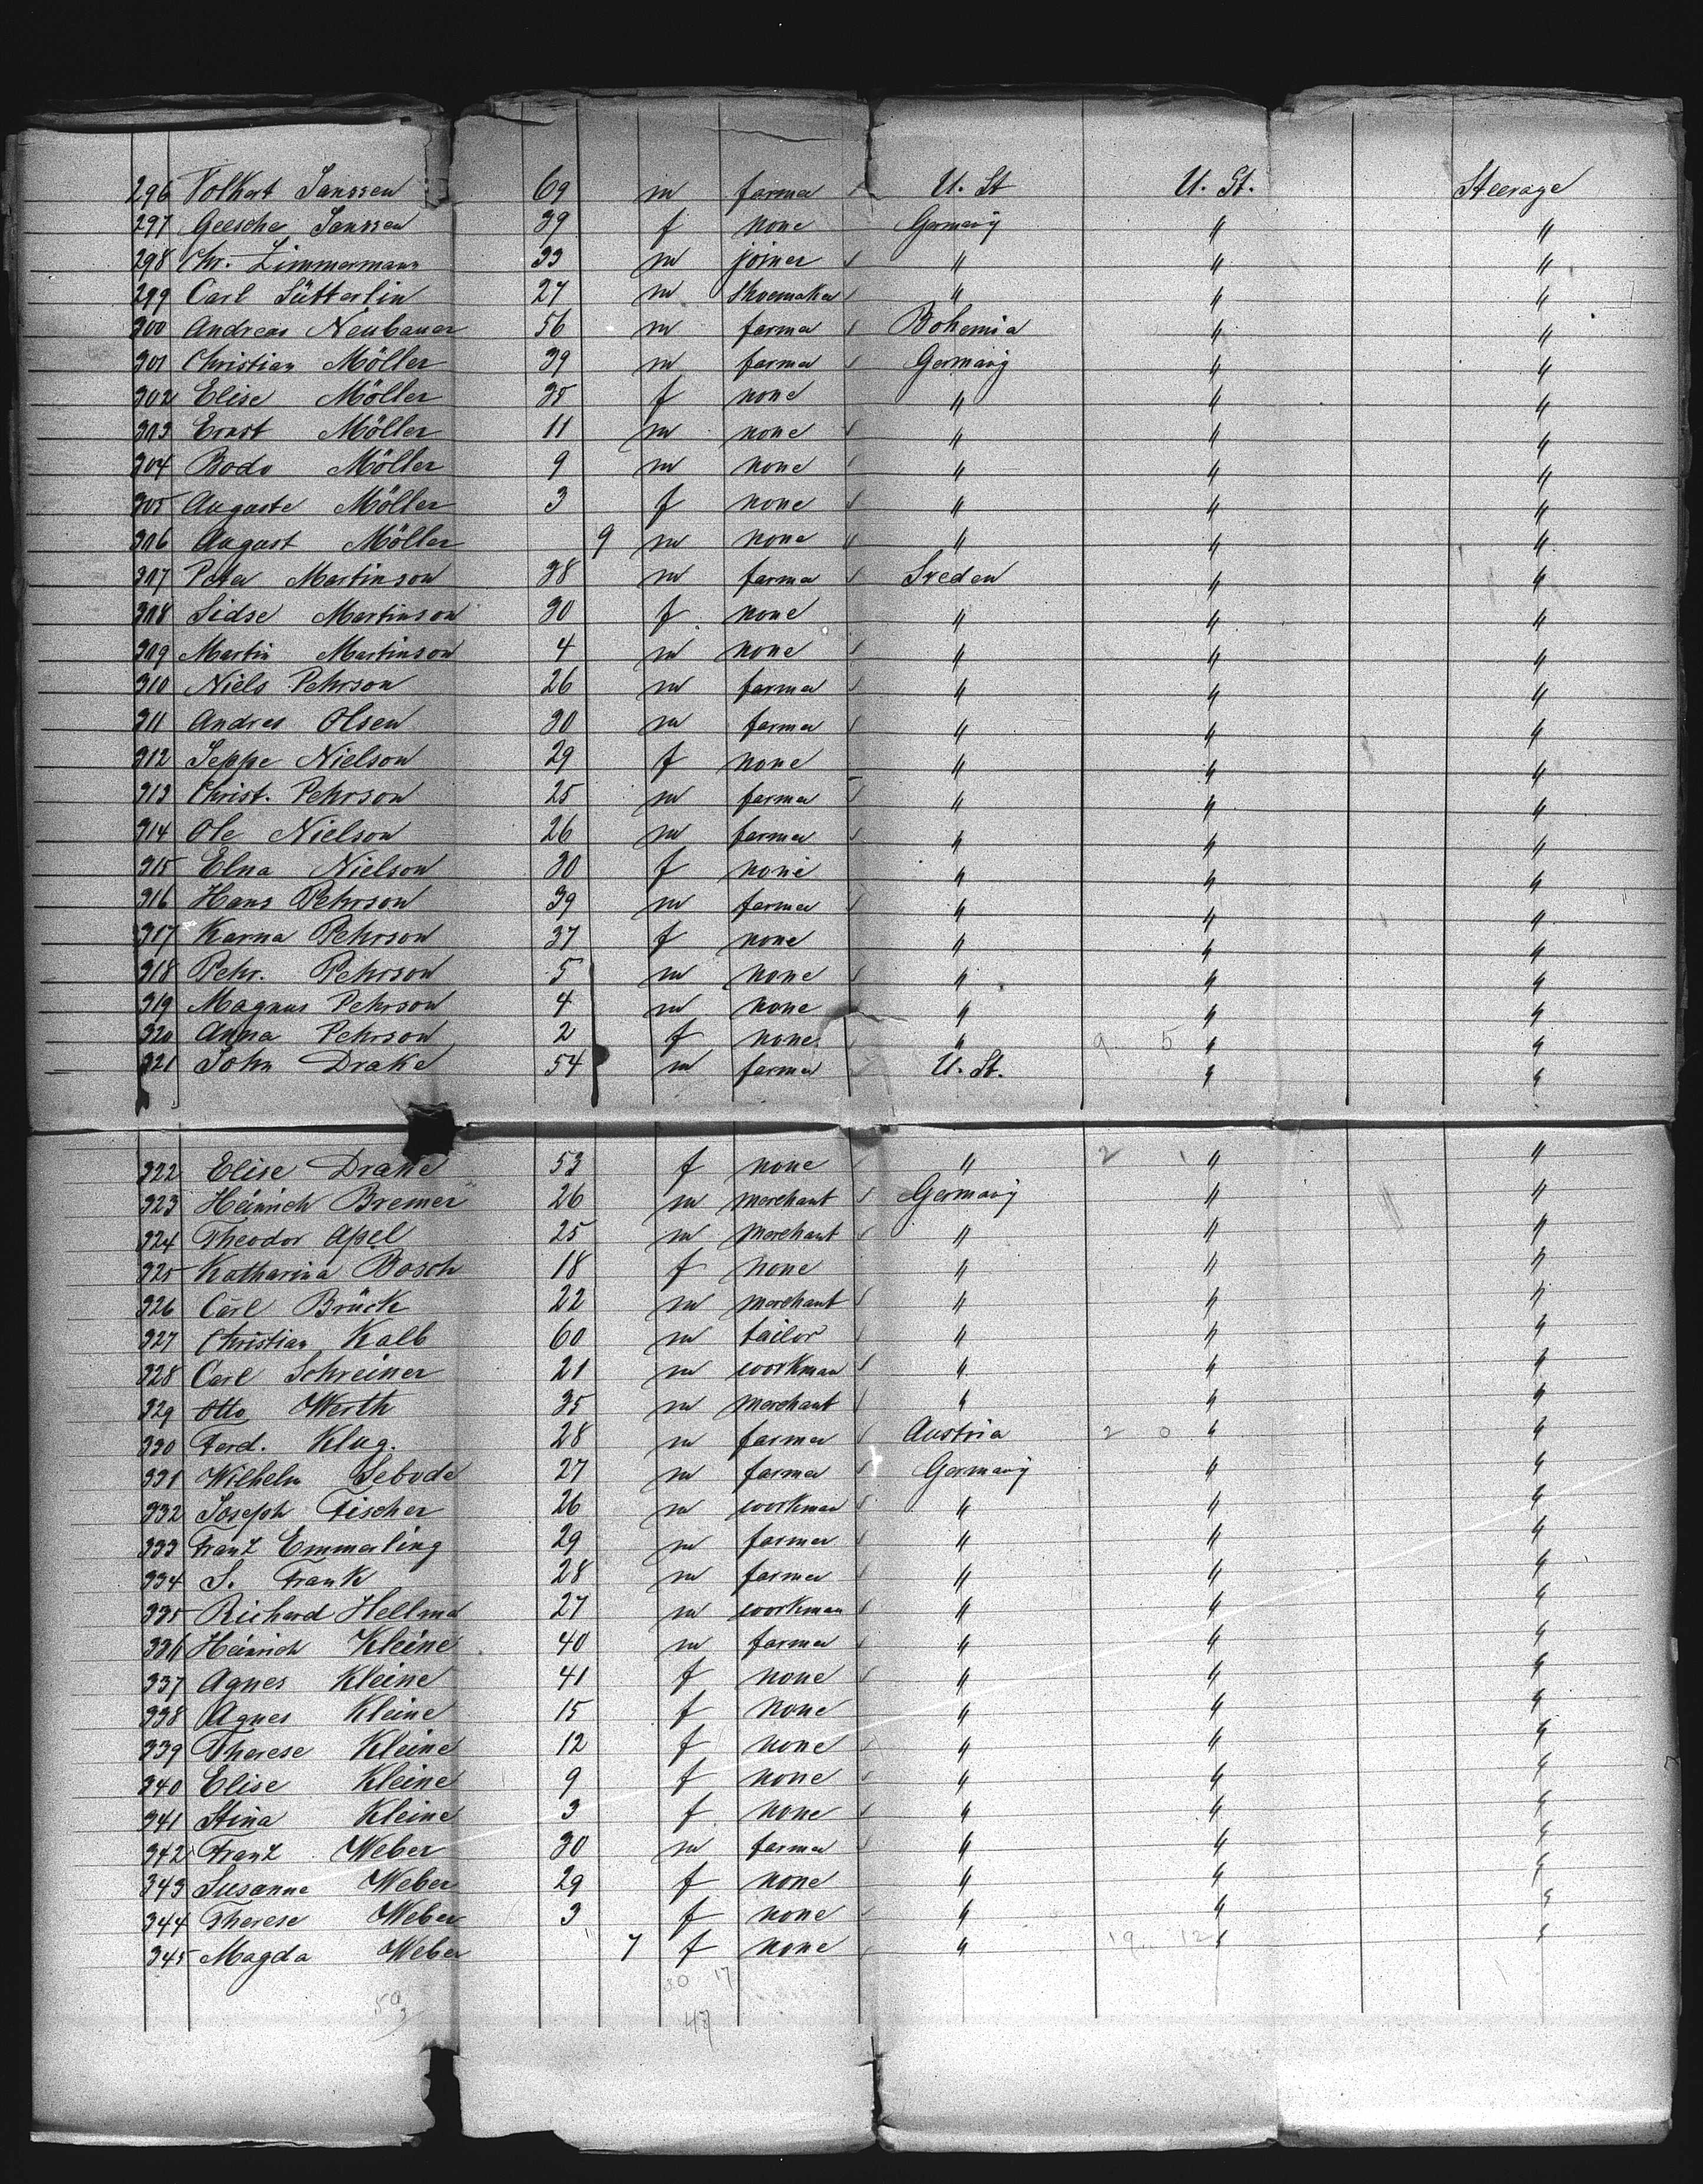 296 Volkert Janssen 69 m farmer U. St U. St. Steerage
297 Geesche Janssen 39 f none Germany " "
298 Chr. Zimmermann 33 m joiner " " "
299 Carl Sütterlin 27 m shoemaker " " "
300 Andreas Neubauer 56 m farmer Bohemia " "
301 Christian Möller 39 m farmer Germany " "
302 Elise Möller 35 f none " " "
303 Ernst Möller 11 m none " " "
304 Bodo Möller 9 m none " " "
305 Auguste Möller 3 f none " " "
306 August Möller 9 m none " " "
307 Peter Martinson 38 m farmer Sveden " "
308 Sidse Martinson 30 f none " " "
309 Martin Martinson 4 m none " " "
310 Niels Pehrson 26 m farmer " " "
311 Andres Olsen 30 m farmer " " "
312 Jeppe Nielson 29 f none " " "
313 Christ. Pehrson 25 m farmer " " "
314 Ole Nielson 26 m farmer " " "
315 Elna Nielson 30 f none " " "
316 Hans Pehrson 39 m farmer " " "
317 Karna Pehrson 37 f none " " "
318 Pehr. Pehrson 5 m none " " "
319 Magnus Pehrson 4 m none " " "
320 Anna Pehrson 2 f none " 9 5 " "
321 John Drake 54 m farmer U. St. " "
322 Elise Drake 53 f none " 2 1 " "
323 Heinrich Bremer 26 m merchant Germany " "
324 Theodor Apel 25 m merchant " " "
325 Katharina Bosch 18 f none " " "
326 Carl Brück 22 m merchant " " "
327 Christian Kalb 60 m tailor " " "
328 Carl Schreiner 21 m workman " " "
329 Otto Werth 35 m merchant " " "
330 Ferd. Klug. 28 m farmer Austria 2 0 " "
331 Wilhelm Sebode 27 m farmer Germany " "
332 Joseph Fischer 26 m workman " " "
333 Franz Emmerling 29 m farmer " " "
334 S. Frank 28 m farmer " " "
335 Richard 27 m workman " " "
336 Heinrich Kleine 40 m farmer " " "
337 Agnes Kleine 41 f none " " "
338 Agnes Kleine 15 f none " " "
339 Therese Kleine 12 f none " " "
340 Elise Kleine 9 f none " " "
341 Stina Kleine 3 f none " " "
342 Franz Weber 30 m farmer " " "
343 Susanne Weber 29 f none " " "
344 Therese Weber 3 f none " " "
345 Magda Weber 7 f none " 19 12 " "
30 17
47